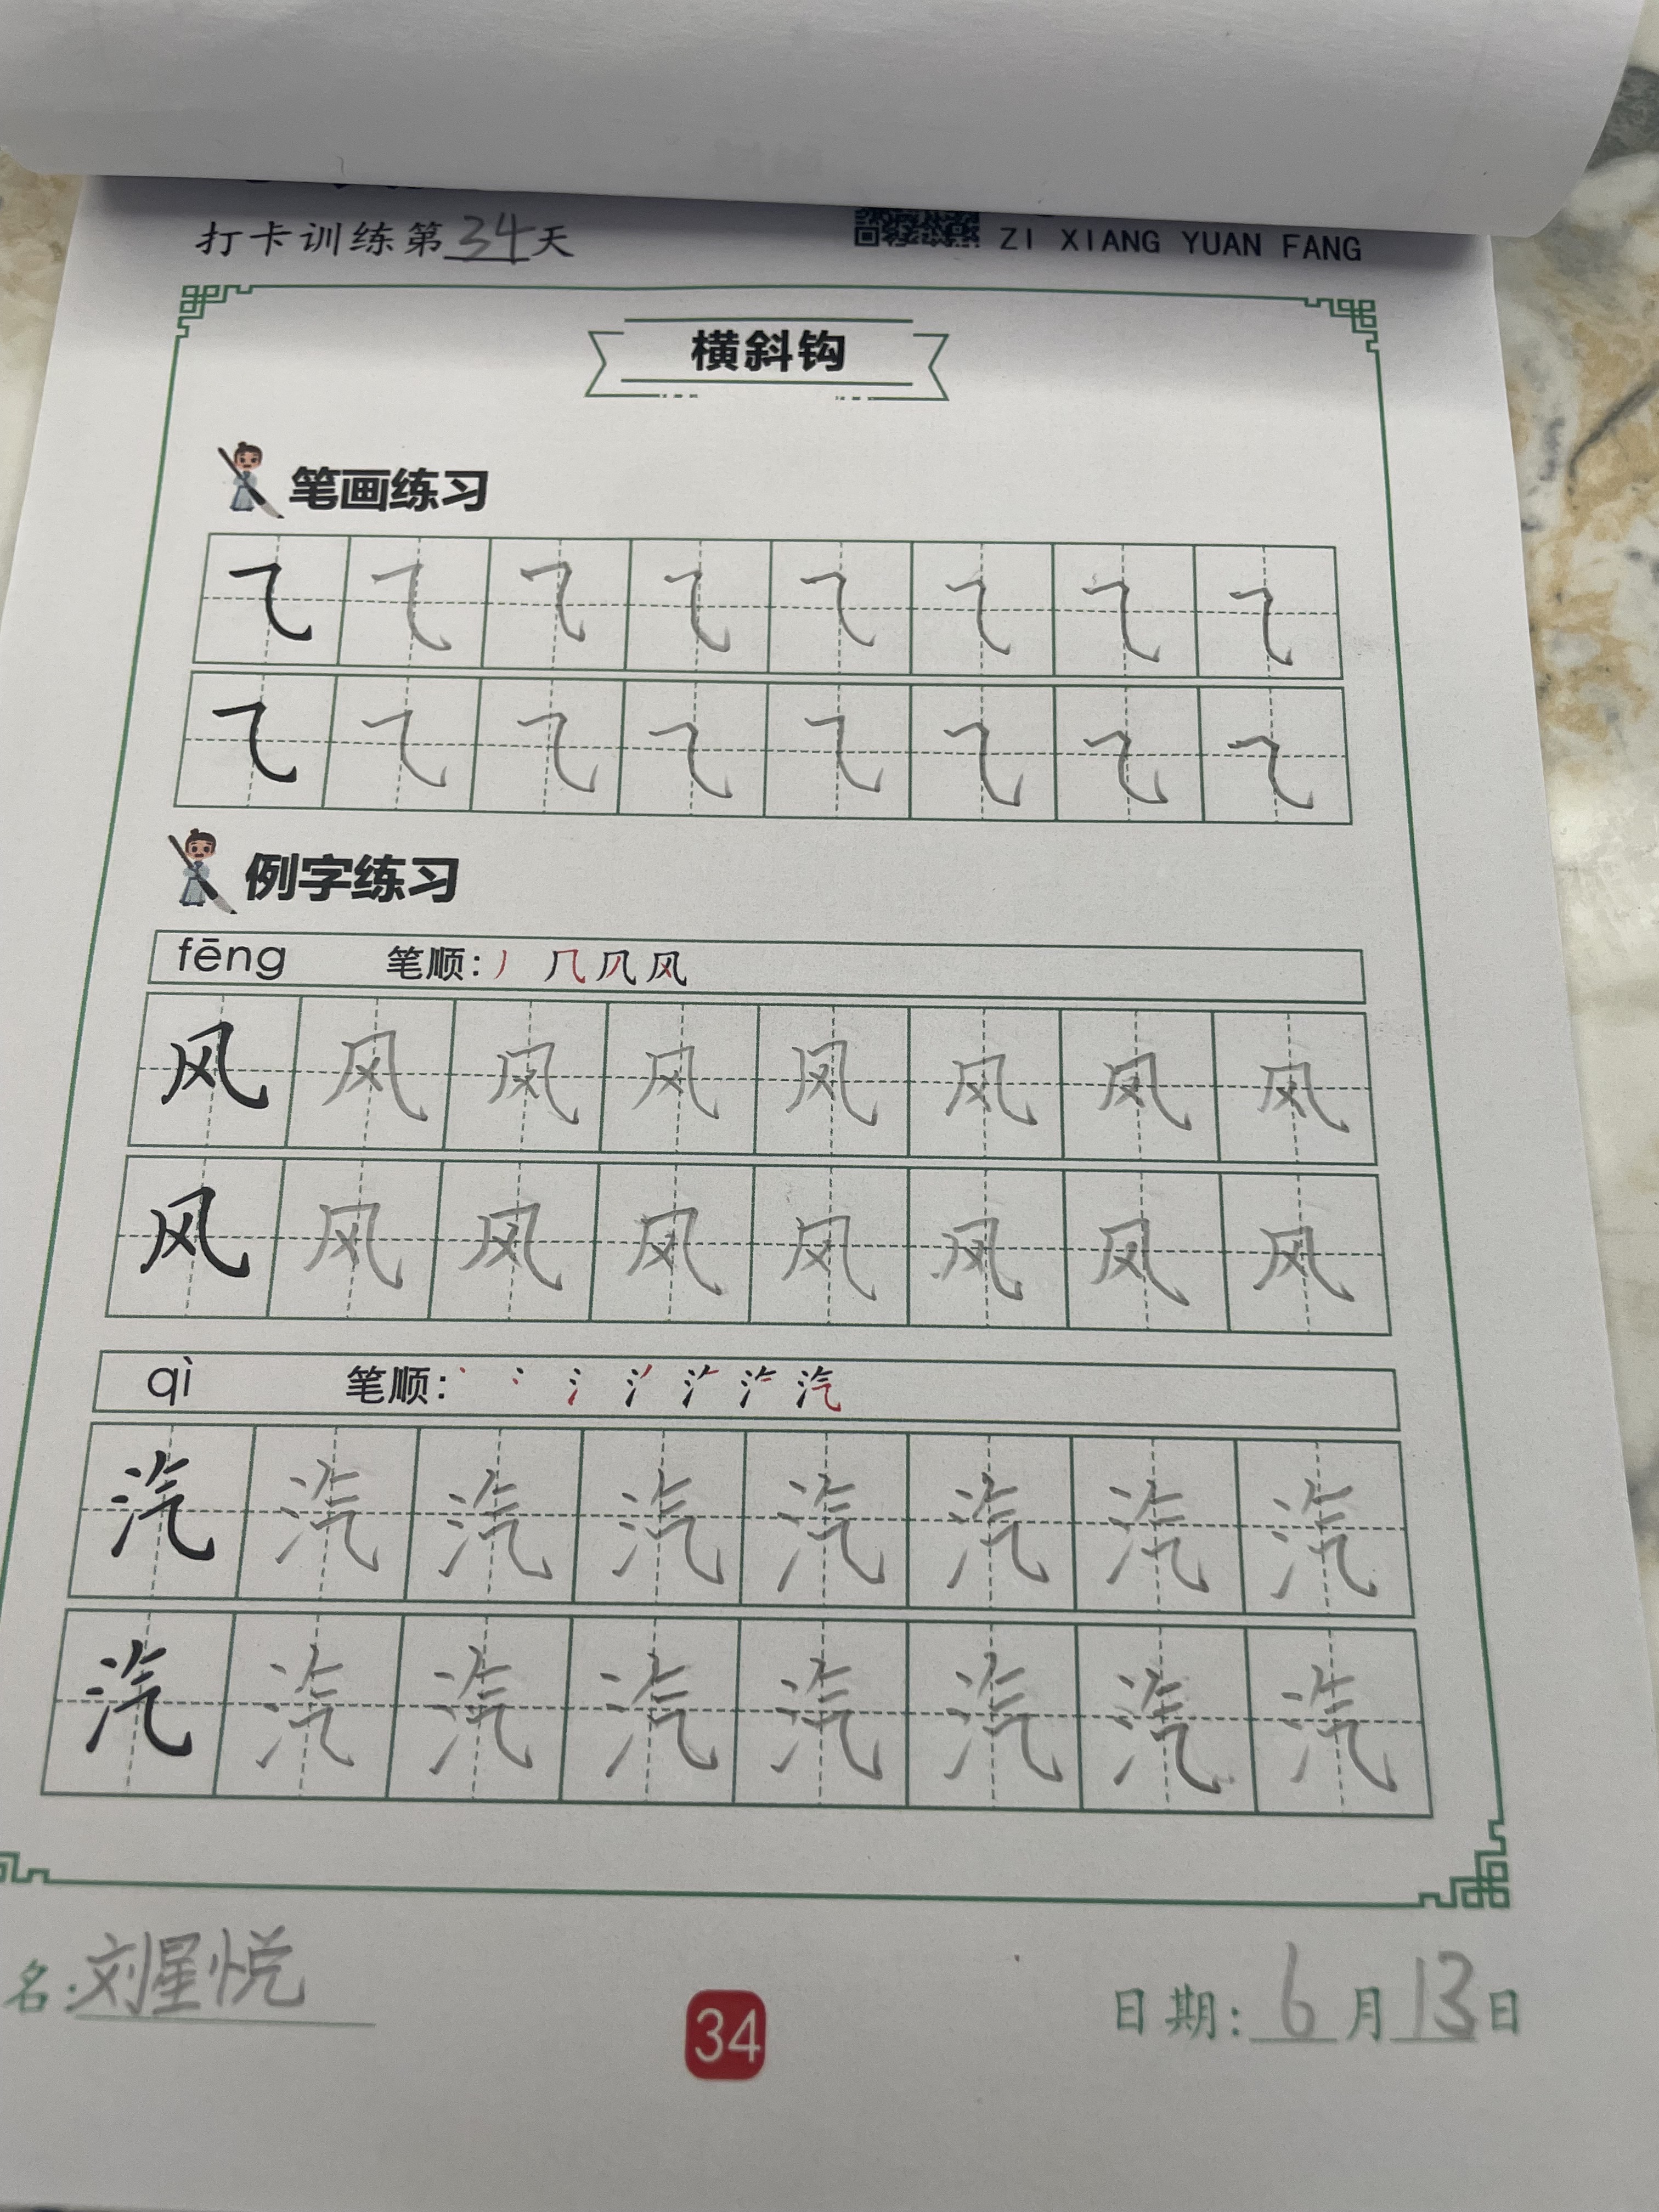 打卡训练第34天 ZI XIANG YUAN FANG
横斜钩
笔画练习
例字练习
fēng 笔顺: 丿 几 风
风 风 风 风 风 风 风 风
风 风 风 风 风 风 风 风
qì 笔顺: 丶 冫 氵 汽
汽 汽 汽 汽 汽 汽 汽 汽
汽 汽 汽 汽 汽 汽 汽 汽
名: 刘星悦 34 日期: 6月13日